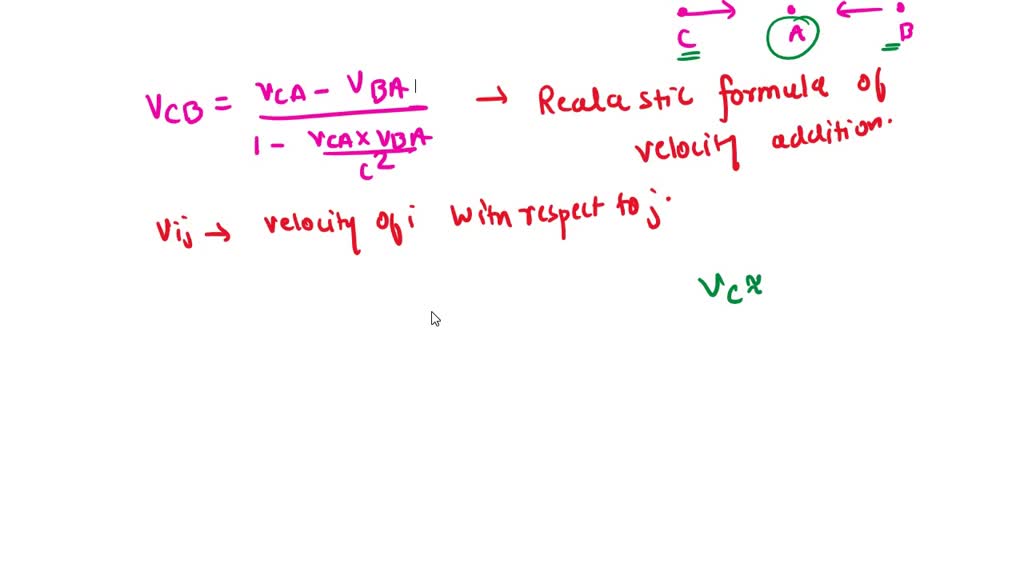 C A B
VCB = VCA - VBA / 1 - VCA x VBA / c² → Realastic formula of
velocity addition.
Vij → velocity of i with respect to j.
Vcx